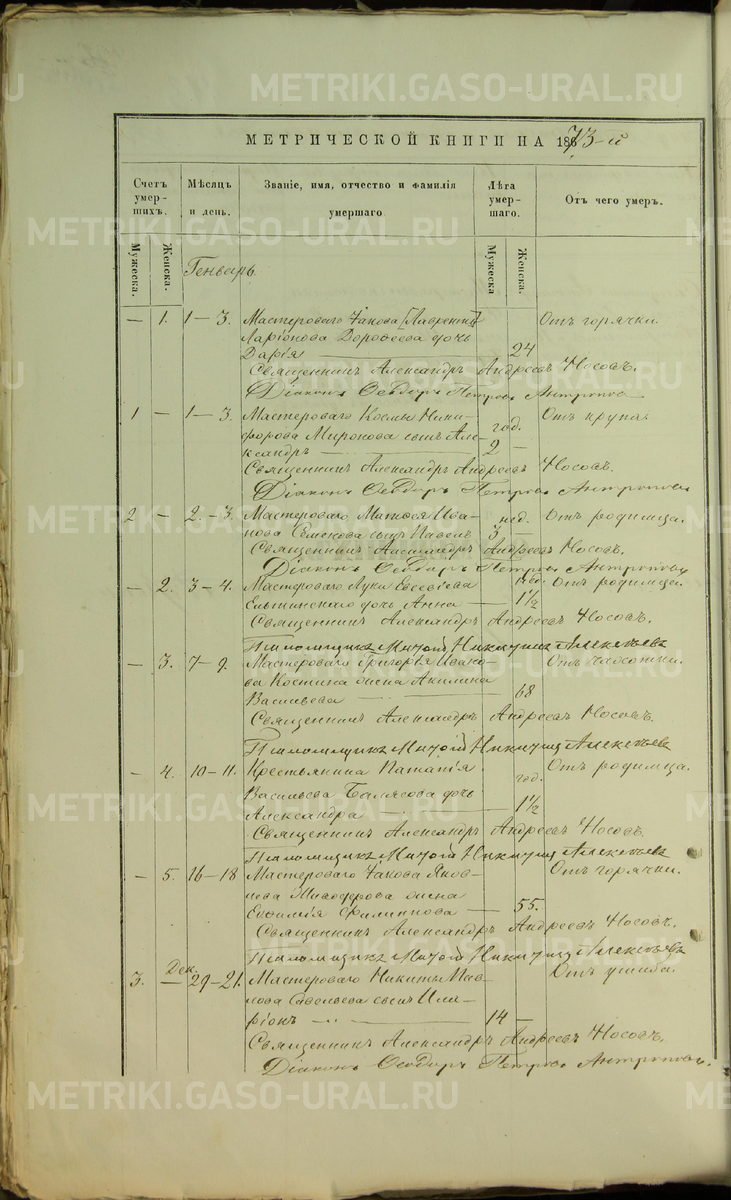 МЕТРИЧЕСКОЙ КНИГИ НА 1873-й
Счетъ умершихъ.
Мѣсяцъ и день.
Званіе, имя, отчество и фамилія умершаго
Лѣта умершаго.
Отъ чего умеръ.
Мужеска.
Женска.
Генварь
Мужеска
Женска.
— 1. 1—3. Мастероваго Іакова [Лаврентія] Отъ горячки.
Ларіонова Дороѳеева дочь
Дарія — 24
Священникъ Александръ Андреевъ Носовъ.
Діаконъ Ѳеодоръ Петровъ Антроповъ
1 — 1—3. Мастероваго Космы Ники- год. Отъ крупа.
форова Миронова сынъ Але-
ксандръ — 2 —
Священникъ Александръ Андреевъ Носовъ.
Діаконъ Ѳеодоръ Петровъ Антроповъ
2 — 2.—3. Мастероваго Матѳея Ива- нед. Отъ родимца.
нова Семенова сынъ Павелъ 3 —
Священникъ Александръ Андреевъ Носовъ.
Діаконъ Ѳеодоръ Петровъ Антроповъ
— 2. 3—4. Мастероваго Луки Евсевіева год. Отъ родимца.
дочь Анна — 1½
Священникъ Александръ Андреевъ Носовъ.
Псаломщикъ Никитинъ Алексѣевъ
— 3. 7—9. Мастероваго Григорья Ивано- Отъ чахотки.
ва Костина жена Акилина
Васильева — 68
Священникъ Александръ Андреевъ Носовъ.
Псаломщикъ Никитинъ Алексѣевъ
— 4. 10—11. Крестьянина Ипатія год. Отъ родимца.
Васильева Балясова дочь
Александра — 1½
Священникъ Александръ Андреевъ Носовъ.
Псаломщикъ Никитинъ Алексѣевъ
— 5. 16—18 Мастероваго Іакова Яков- Отъ горячки.
лева жена
Евфимія Филиппова — 55.
Священникъ Александръ Андреевъ Носовъ.
Псаломщикъ Никитинъ Алексѣевъ
Дек.
3. — 29—21. Мастероваго Никиты Пав- Отъ ушиба.
лова Савельева сынъ Ила-
ріонъ — 14 —
Священникъ Александръ Андреевъ Носовъ.
Діаконъ Ѳеодоръ Петровъ Антроповъ.
METRIKI.GASO-URAL.RU